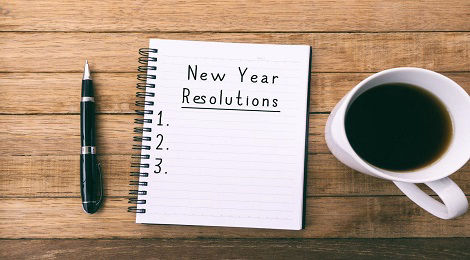 New Year
Resolutions
1.
2.
3.